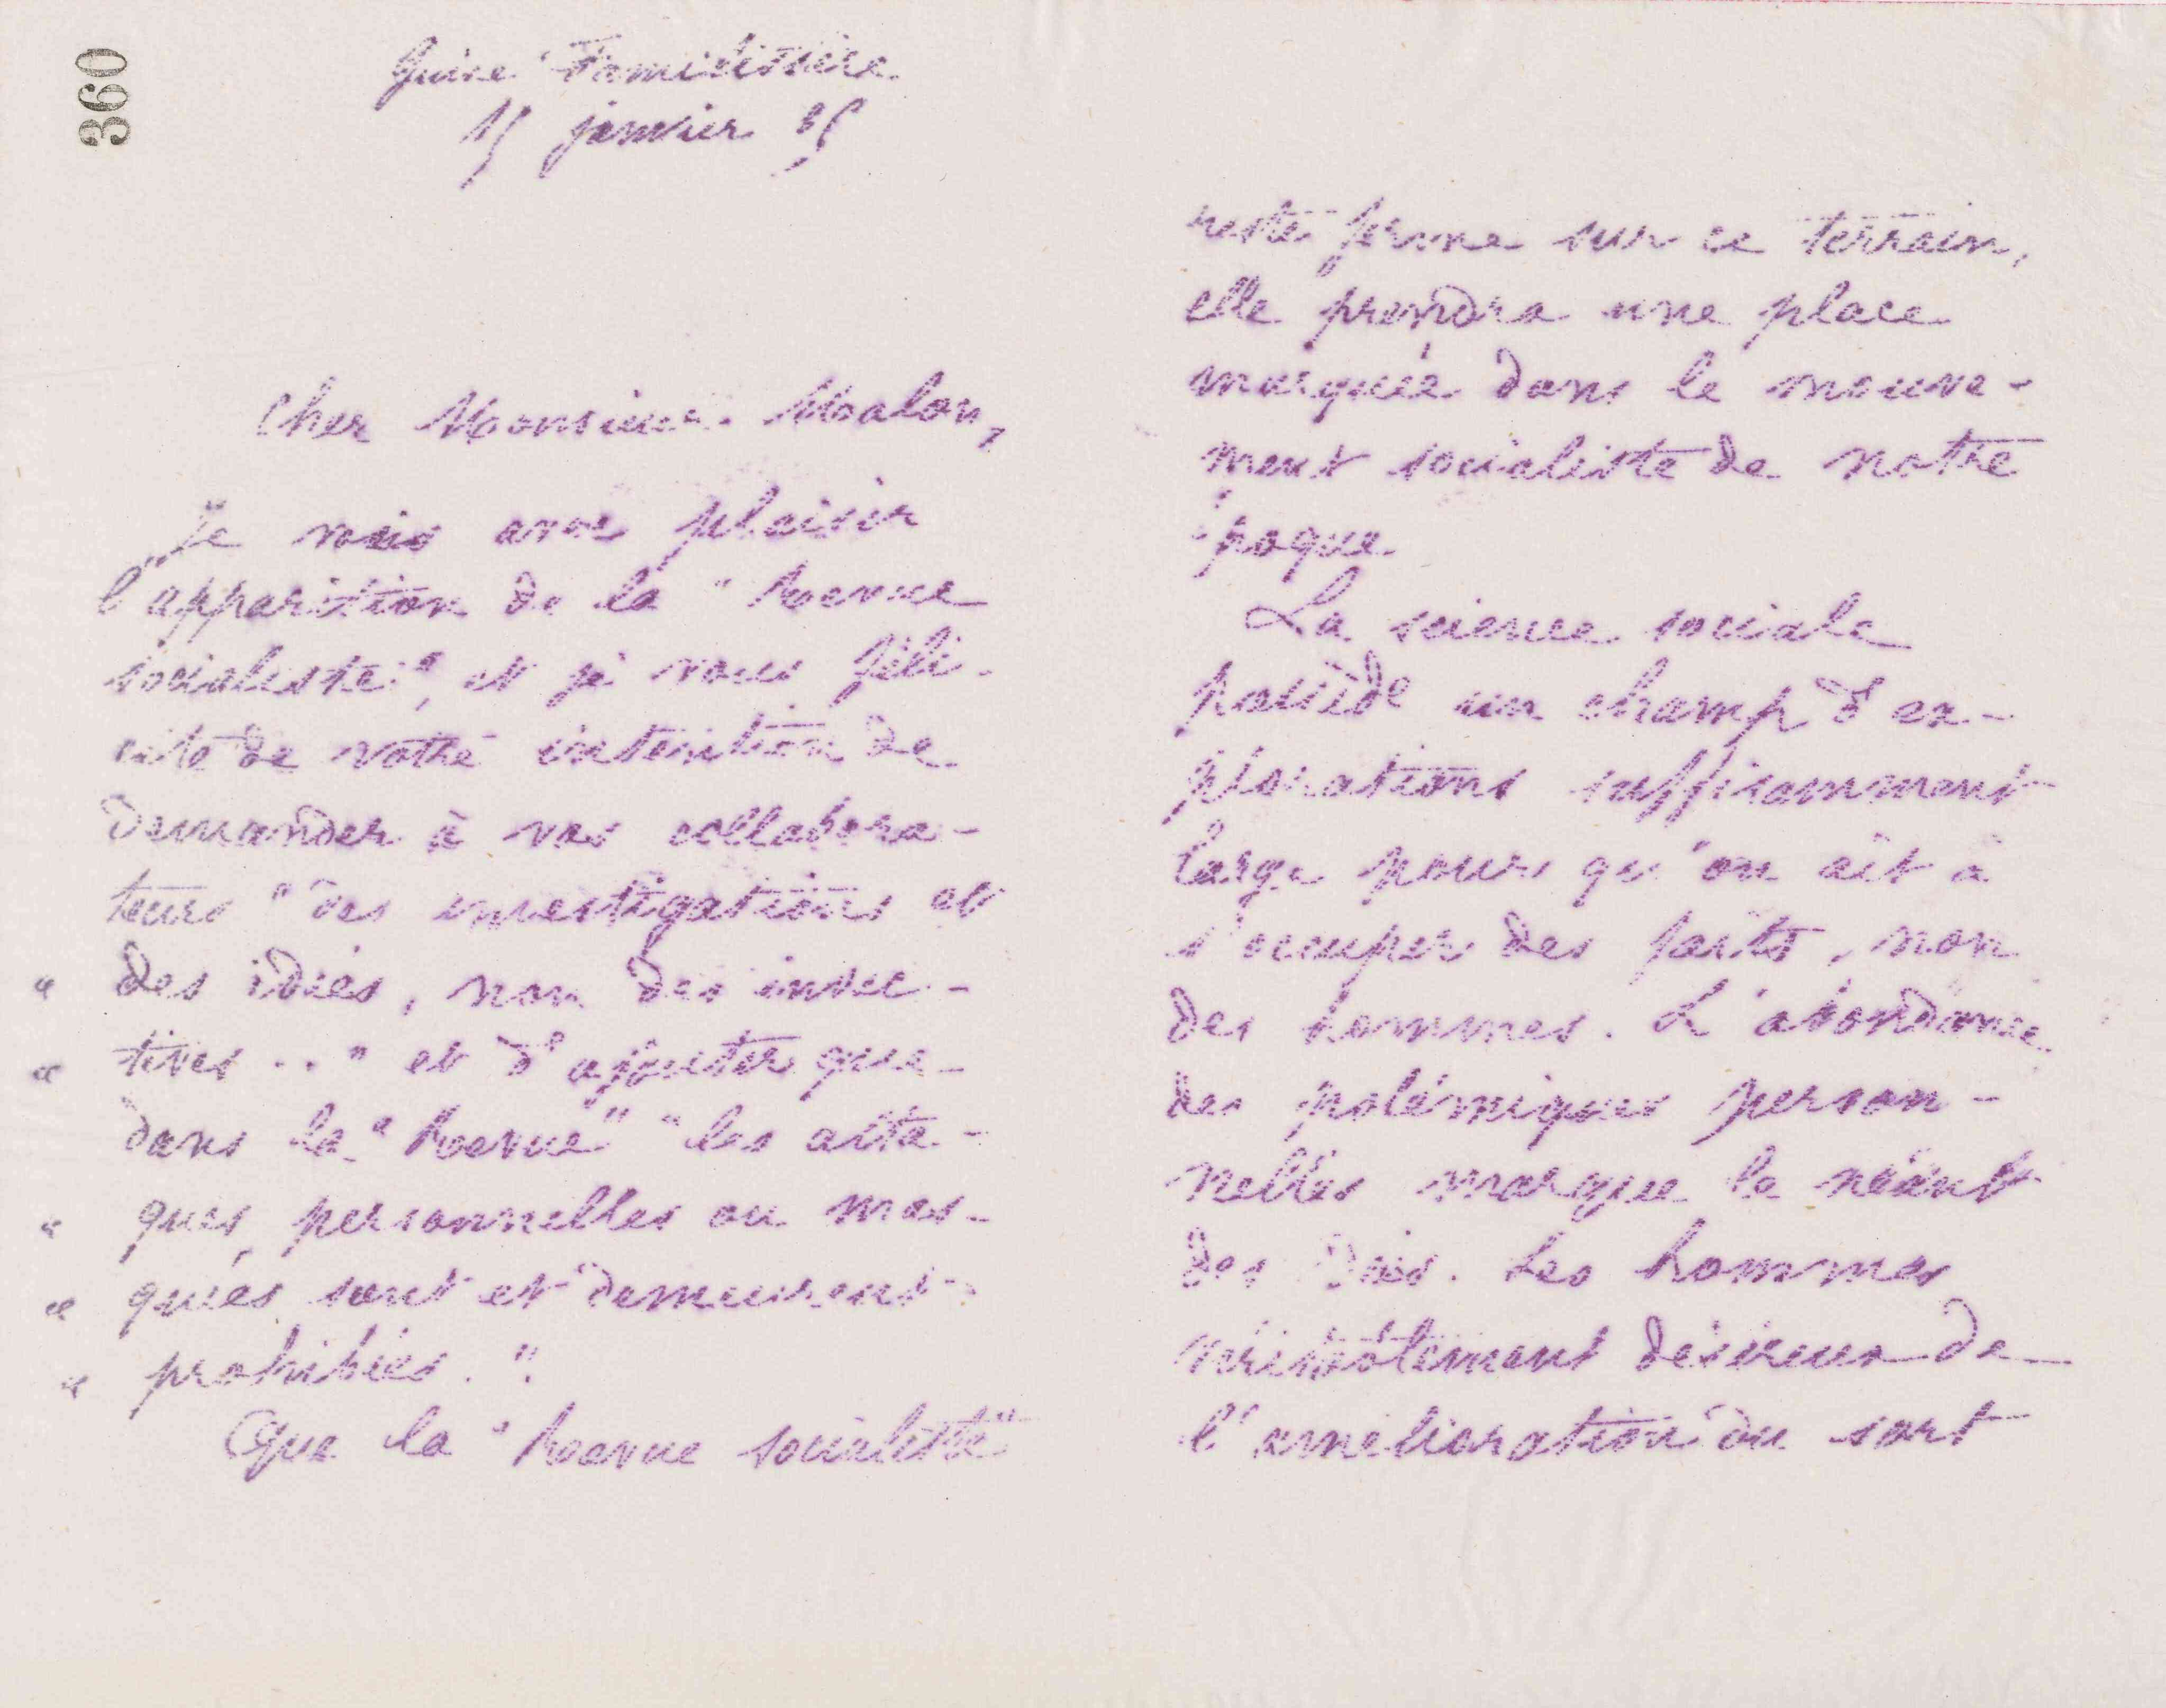 360
Guise Familistère
15 janvier 85
Cher Monsieur Malon,
Je vois avec plaisir
l'apparition de la "Revue
socialiste", et je vous féli-
cite de votre intention de
demander à vos collabora-
teurs "des investigations et
" des idées, non des invec-
" tives .." et d'ajouter que
dans la "Revue" "les atta-
" ques, personnelles ou mas-
" quées sont et demeurent
" prohibées."
Que la "Revue socialiste"
reste ferme sur ce terrain,
elle prendra une place
marquée dans le mouve-
ment socialiste de notre
époque.
La science sociale
possède un champ d'ex-
plorations suffisamment
large pour qu'on ait à
s'occuper des faits, non
des hommes. L'abondance
des polémiques person-
nelles marque le néant
des idées. Les hommes
véritablement désireux de
l'amélioration du sort